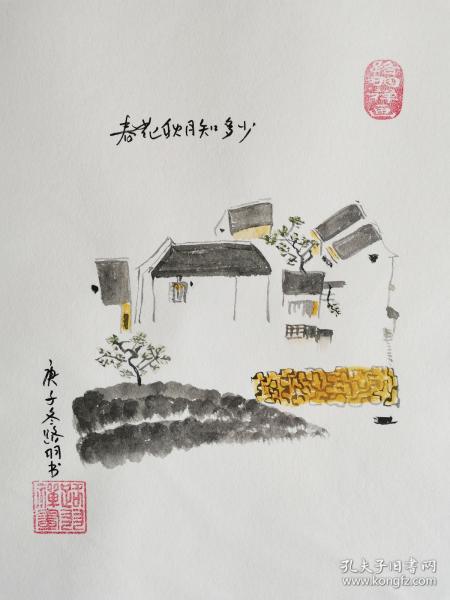 春花秋月知多少
庚子冬路羽书
路羽禅画
孔夫子旧书网
www.kongfz.com